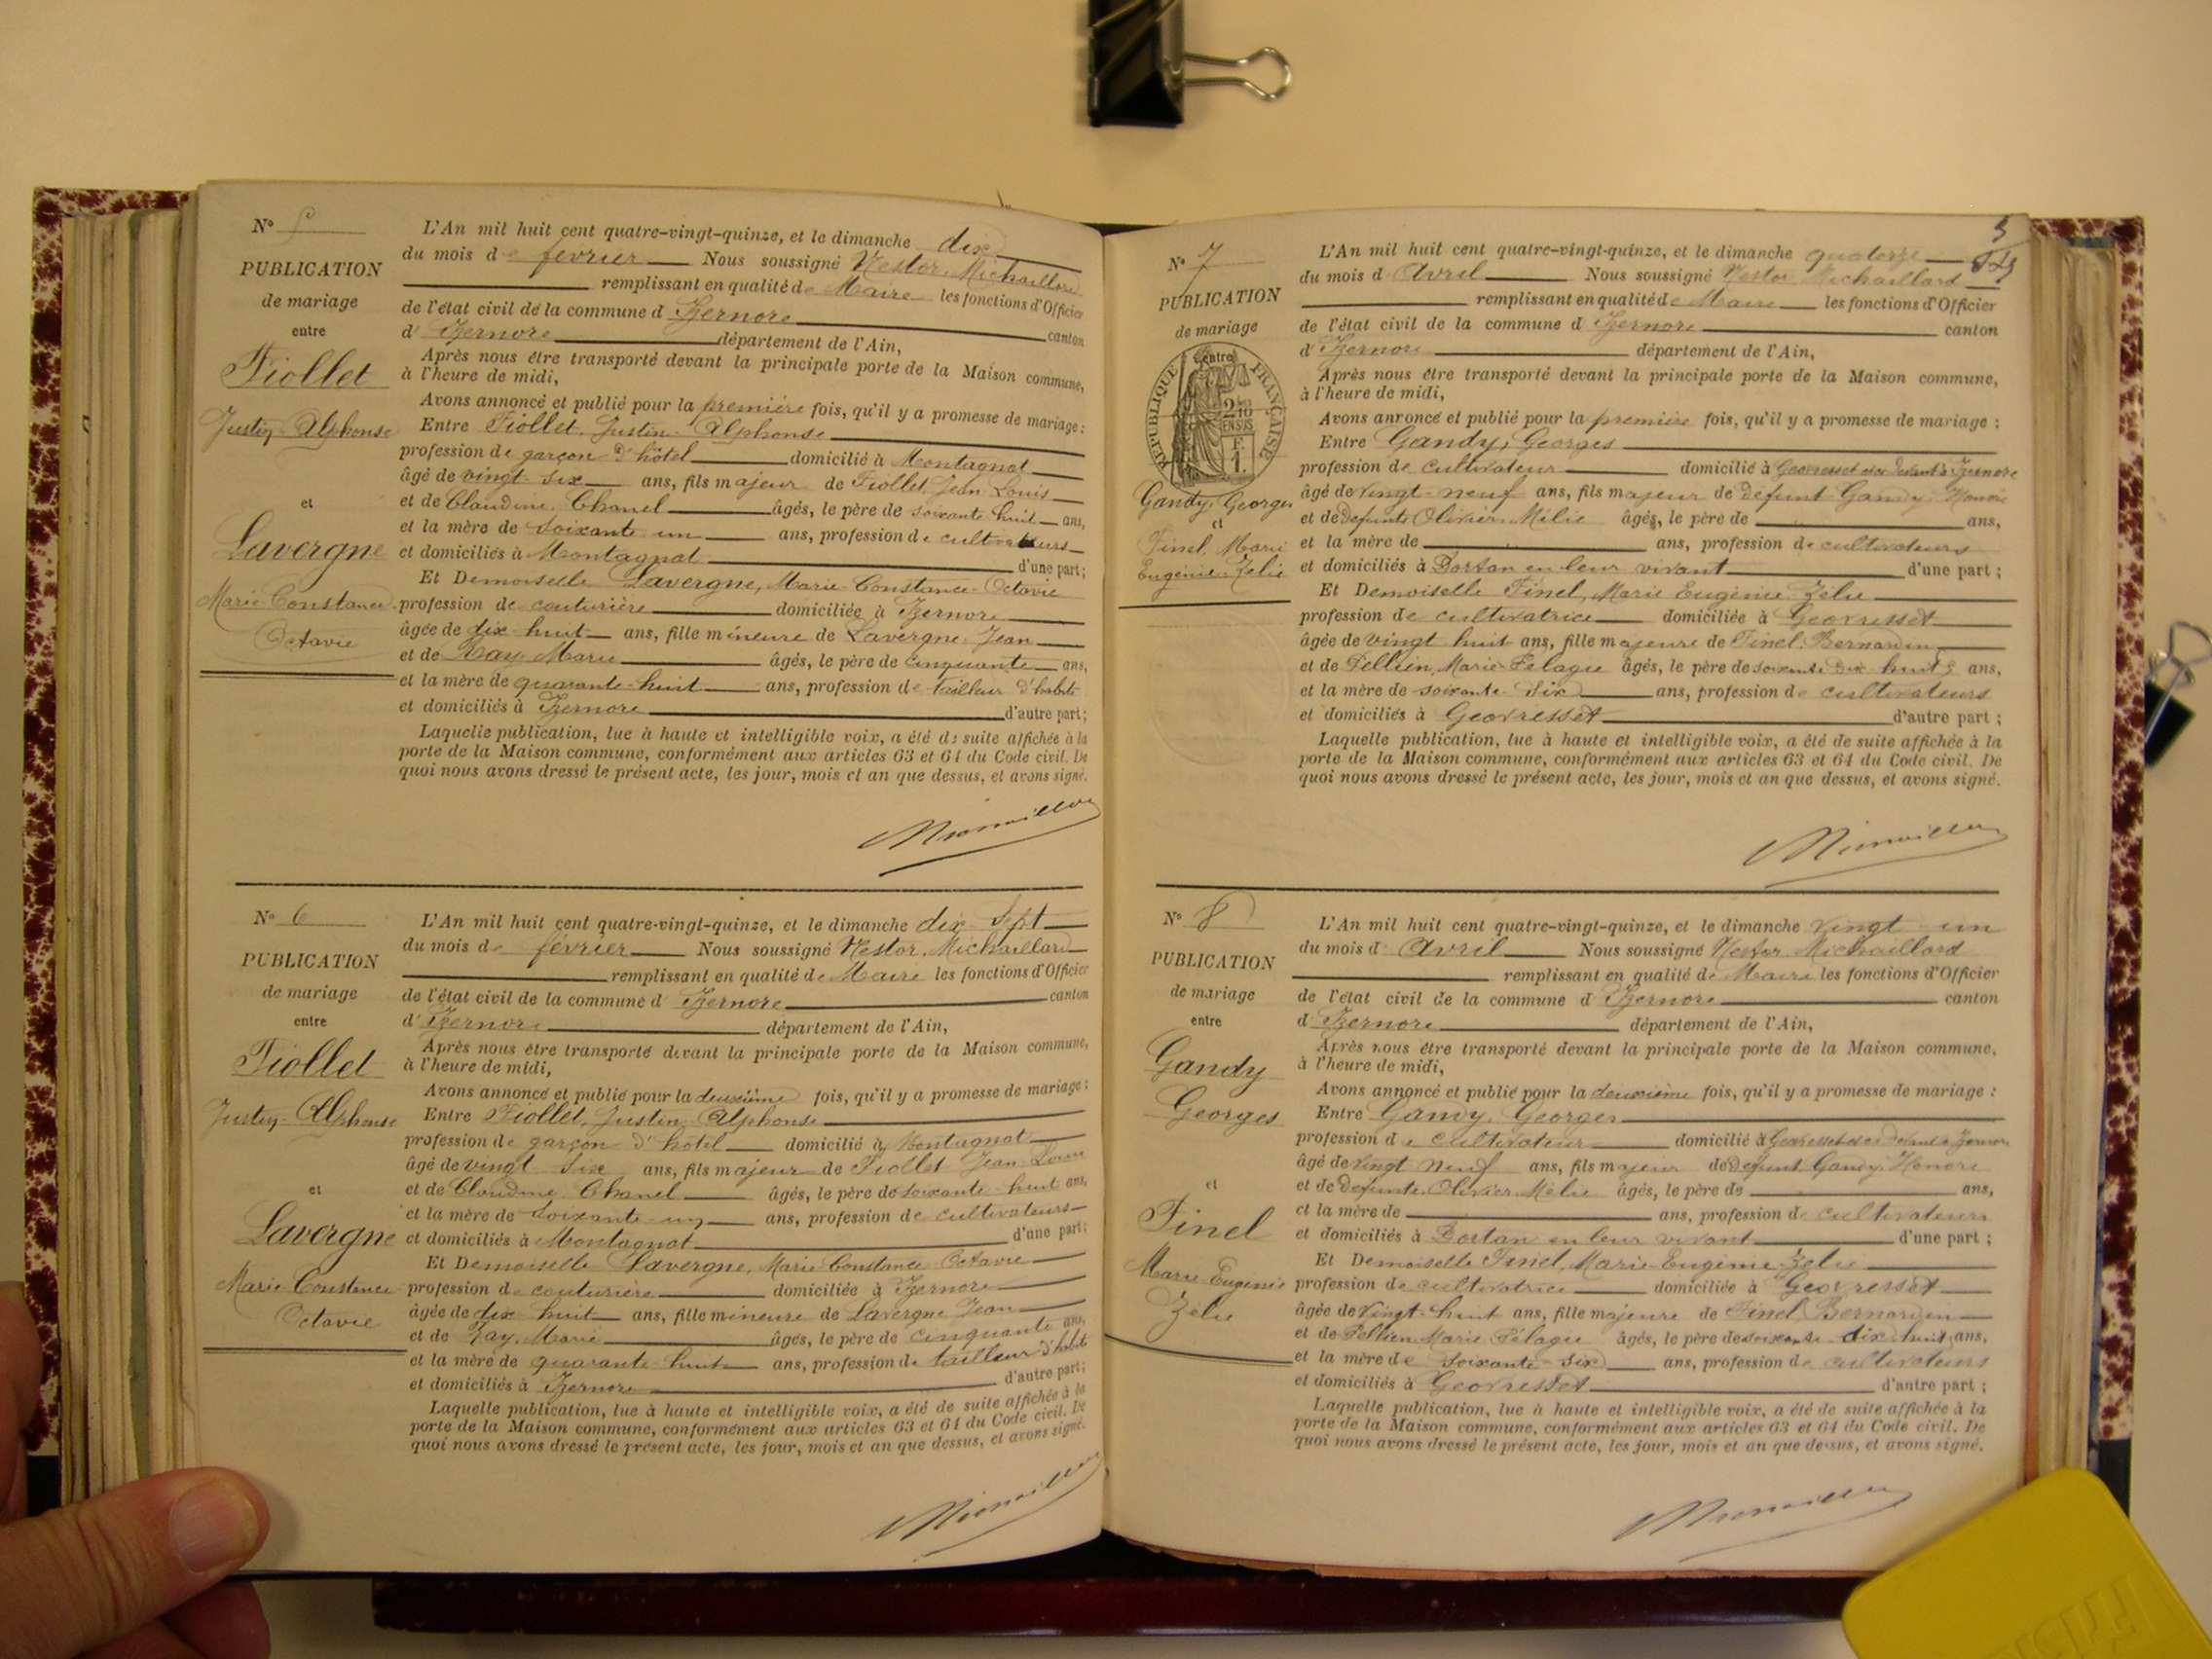 N° 5
PUBLICATION
de mariage
entre
Fiollet
Justin Alphonse
et
Lavergne
Marie Constance
Octavie
L'An mil huit cent quatre-vingt-quinze, et le dimanche dix
du mois de février Nous soussigné Nestor Michaillard
remplissant en qualité de Maire les fonctions d'Officier
de l'état civil de la commune d'Izernore
canton
d'Izernore département de l'Ain,
Après nous être transporté devant la principale porte de la Maison commune,
à l'heure de midi,
Avons annoncé et publié pour la première fois, qu'il y a promesse de mariage :
Entre Fiollet, Justin Alphonse
profession de garçon d'hôtel domicilié à Montagnat
âgé de vingt six ans, fils majeur de Fiollet Jean Louis
et de Claudine Chanel âgés, le père de soixante huit ans,
et la mère de soixante un ans, profession de cultivateurs
et domiciliés à Montagnat d'une part ;
Et Demoiselle Lavergne, Marie Constance Octavie
profession de couturière domiciliée à Izernore
âgée de dix huit ans, fille mineure de Lavergne Jean
et de Marie âgés, le père de cinquante ans,
et la mère de quarante-huit ans, profession de tailleur d'habits
et domiciliés à Izernore d'autre part ;
Laquelle publication, lue à haute et intelligible voix, a été de suite affichée à la
porte de la Maison commune, conformément aux articles 63 et 64 du Code civil. De
quoi nous avons dressé le présent acte, les jour, mois et an que dessus, et avons signé.
N° 6
PUBLICATION
de mariage
entre
Fiollet
Justin-Alphonse
et
Lavergne
Marie Constance
Octavie
L'An mil huit cent quatre-vingt-quinze, et le dimanche dix sept
du mois de février Nous soussigné Nestor Michaillard
remplissant en qualité de Maire les fonctions d'Officier
de l'état civil de la commune d'Izernore canton
d'Izernore département de l'Ain,
Après nous être transporté devant la principale porte de la Maison commune,
à l'heure de midi,
Avons annoncé et publié pour la deuxième fois, qu'il y a promesse de mariage :
Entre Fiollet, Justin Alphonse
profession de garçon d'hotel domicilié à Montagnat
âgé de vingt six ans, fils majeur de Fiollet Jean Louis
et de Claudine Chanel âgés, le père de soixante huit ans,
et la mère de soixante un ans, profession de cultivateurs
et domiciliés à Montagnat d'une part ;
Et Demoiselle Lavergne, Marie Constance Octavie
profession de couturière domiciliée à Izernore
âgée de dix huit ans, fille mineure de Lavergne Jean
et de Marie âgés, le père de cinquante ans,
et la mère de quarante huit ans, profession de tailleur d'habits
et domiciliés à Izernore d'autre part ;
Laquelle publication, lue à haute et intelligible voix, a été de suite affichée à la
porte de la Maison commune, conformément aux articles 63 et 64 du Code civil. De
quoi nous avons dressé le présent acte, les jour, mois et an que dessus, et avons signé.
5
N° 7
PUBLICATION
de mariage
entre
RÉPUBLIQUE FRANÇAISE
2/10
EN SUS
F.
1.
Gandy, Georges
et
Finel, Marie
Eugénie Zélie
L'An mil huit cent quatre-vingt-quinze, et le dimanche quatorze
du mois d'Avril Nous soussigné Nestor Michaillard
remplissant en qualité de Maire les fonctions d'Officier
de l'état civil de la commune d'Izernore canton
d'Izernore département de l'Ain,
Après nous être transporté devant la principale porte de la Maison commune,
à l'heure de midi,
Avons annoncé et publié pour la première fois, qu'il y a promesse de mariage :
Entre Gandy, Georges
profession de cultivateur domicilié à Geovresset ci-devant à Izernore
âgé de vingt-neuf ans, fils majeur de défunt Gandy Honoré
et de défunte Olivier Mélie âgés, le père de ans,
et la mère de ans, profession de cultivateurs
et domiciliés à Dortan en leur vivant d'une part ;
Et Demoiselle Finel, Marie Eugénie Zélie
profession de cultivatrice domiciliée à Geovresset
âgée de vingt huit ans, fille majeure de Finel Bernardin
et de Pellien, Marie Pélagie âgés, le père de soixante dix huit ans,
et la mère de soixante six ans, profession de cultivateurs
et domiciliés à Geovresset d'autre part ;
Laquelle publication, lue à haute et intelligible voix, a été de suite affichée à la
porte de la Maison commune, conformément aux articles 63 et 64 du Code civil. De
quoi nous avons dressé le présent acte, les jour, mois et an que dessus, et avons signé.
N° 8
PUBLICATION
de mariage
entre
Gandy
Georges
et
Finel
Marie Eugénie
Zélie
L'An mil huit cent quatre-vingt-quinze, et le dimanche vingt un
du mois d'Avril Nous soussigné Nestor Michaillard
remplissant en qualité de Maire les fonctions d'Officier
de l'état civil de la commune d'Izernore canton
d'Izernore département de l'Ain,
Après nous être transporté devant la principale porte de la Maison commune,
à l'heure de midi,
Avons annoncé et publié pour la deuxième fois, qu'il y a promesse de mariage :
Entre Gandy, Georges
profession de cultivateur domicilié à Geovresset ci-devant à Izernore
âgé de vingt neuf ans, fils majeur de défunt Gandy Honoré
et de défunte Olivier Mélie âgés, le père de ans,
et la mère de ans, profession de cultivateurs
et domiciliés à Dortan en leur vivant d'une part ;
Et Demoiselle Finel, Marie Eugénie Zélie
profession de cultivatrice domiciliée à Geovresset
âgée de vingt-huit ans, fille majeure de Finel Bernardin
et de Pellien Marie Pélagie âgés, le père de soixante dix huit ans,
et la mère de soixante six ans, profession de cultivateurs
et domiciliés à Geovresset d'autre part ;
Laquelle publication, lue à haute et intelligible voix, a été de suite affichée à la
porte de la Maison commune, conformément aux articles 63 et 64 du Code civil. De
quoi nous avons dressé le présent acte, les jour, mois et an que dessus, et avons signé.